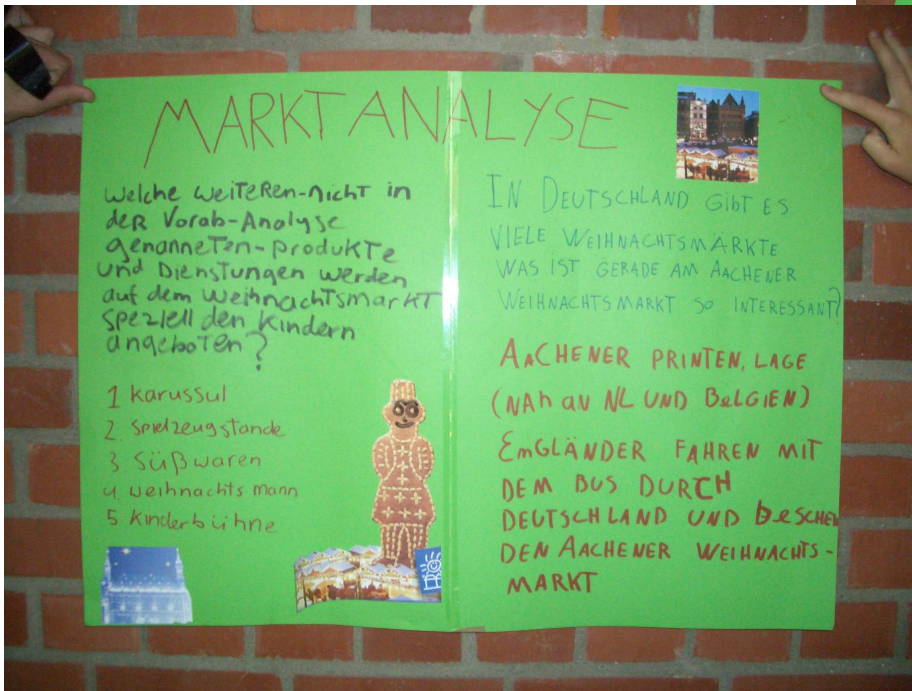 MARKTANALYSE
Welche weiteren-nicht in
der Vorab-Analyse
genanneten-produkte
und Dienstungen werden
auf dem weihnachtsmarkt
speziell den Kindern
angeboten?
1 karussul
2. spielzeugstande
3 Süßwaren
4. weihnachtsmann
5 Kinderbühne
IN DEUTSCHLAND GibT ES
VIELE WEIHNACHTSMÄRKTE
WAS IST GERADE AM AACHENER
WEIHNACHTSMARKT SO INTERESSANT?
AACHENER PRINTEN, LAGE
(NAh AN NL UND BELGIEN)
EmGLÄNDER FAHREN MIT
DEM BUS DURCH
DEUTSCHLAND UND beSCHEN
DEN AACHENER WEIHNACHTS-
MARKT